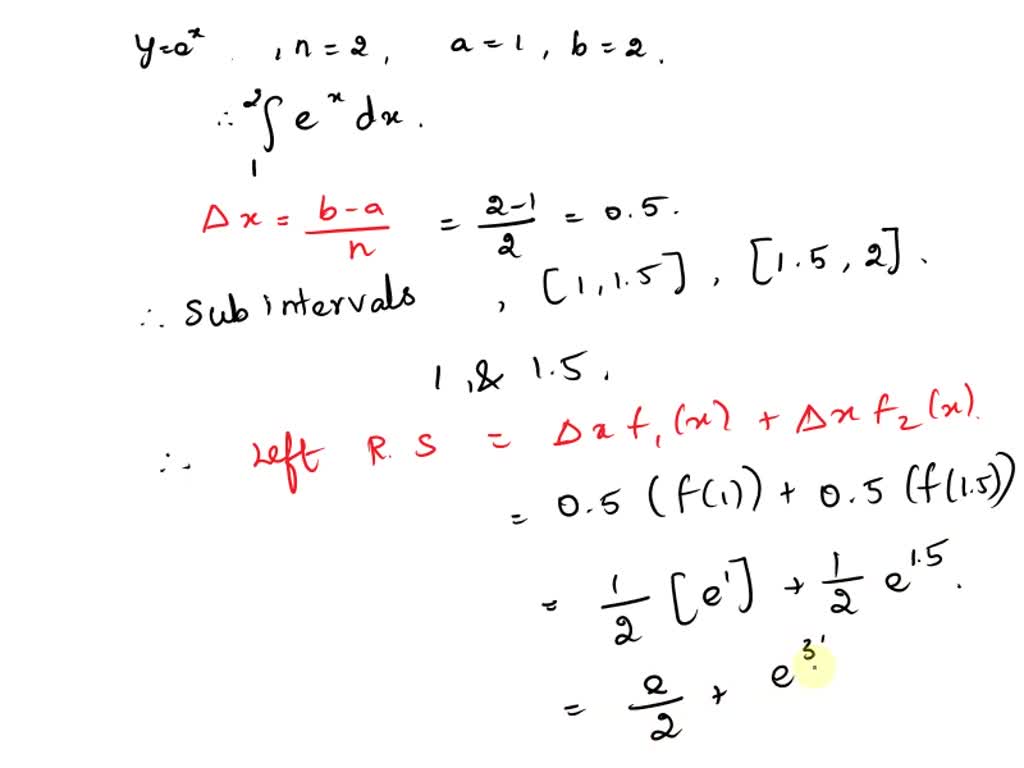 y=e^x , n = 2, a = 1, b = 2.
∴ ∫_1^2 e^x dx.
Δx = (b-a)/n = (2-1)/2 = 0.5.
∴ Sub intervals , [1, 1.5], [1.5, 2].
1, & 1.5.
∴ Left R. S = Δx f_1(x) + Δx f_2(x).
= 0.5 (f(1)) + 0.5 (f(1.5))
= 1/2 [e^1] + 1/2 e^1.5.
= e/2 + e^3